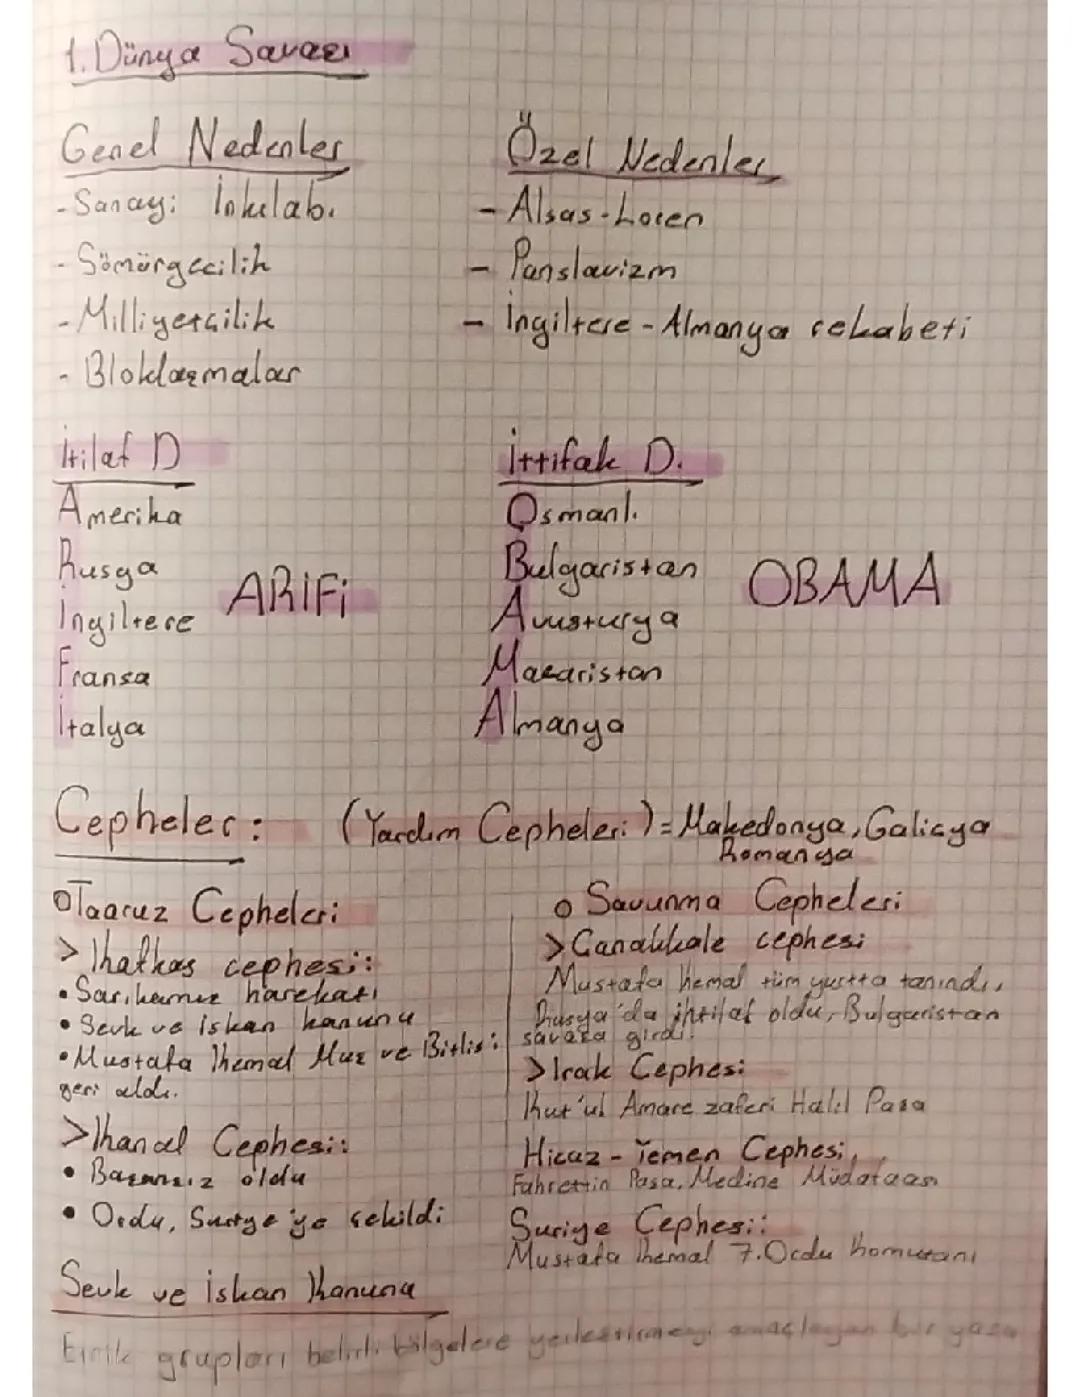 1. Dünya Savaşı
Genel Nedenler
- Sanayi İnkılabı
- Sömürgecilik
- Milliyetçilik
- Bloklaşmalar
Özel Nedenler
- Alsas-Loren
- Panslavizm
- İngiltere - Almanya rekabeti
İtilaf D
Amerika
Rusya
İngiltere
Fransa
İtalya
ARİFİ
İttifak D.
Osmanlı
Bulgaristan
Avusturya
Macaristan
Almanya
OBAMA
Cepheler:
(Yardım Cepheleri) = Makedonya, Galiçya
Romanya
Taaruz Cepheleri
> Kafkas cephesi:
• Sarıkamış harekatı
• Sevk ve iskan kanunu
• Mustafa Kemal Muş ve Bitlis'i
geri aldı.
> Kanal Cephesi:
• Başarısız oldu
• Ordu, Suriye'ye çekildi
Savunma Cepheleri
> Çanakkale cephesi
Mustafa Kemal tüm yurtta tanındı,
Rusya'da ihtilal oldu, Bulgaristan
savaşa girdi.
> Irak Cephesi
Kut'ul Amare zaferi Halil Paşa
Hicaz - Yemen Cephesi
Fahrettin Paşa, Medine Müdafaası
Suriye Cephesi:
Mustafa Kemal 7. Ordu komutanı
Sevk ve İskan Kanunu
Etnik grupları belirli bölgelere yerleştirmeyi amaçlayan bir yasa